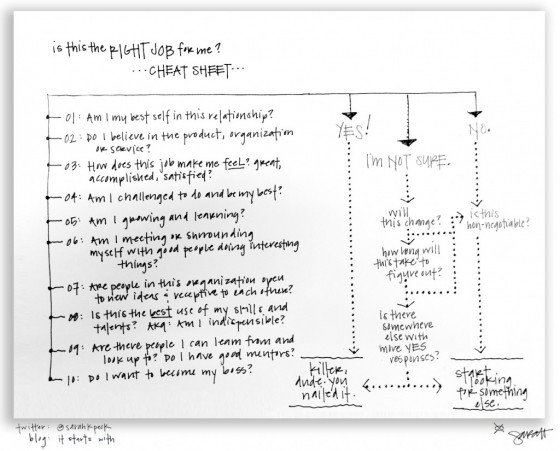 is this the RIGHT JOB for me?
...CHEAT SHEET...
01: Am I my best self in this relationship?
02: Do I believe in the product, organization
or service?
03: How does this job make me feel? great,
accomplished, satisfied?
04: Am I challenged to do and be my best?
05: Am I growing and learning?
06: Am I meeting or surrounding
myself with good people doing interesting
things?
07: Are people in this organization open
to new ideas & receptive to each other?
08: Is this the best use of my skills and
talents? AKA: Am I indispensible?
09: Are there people I can learn from and
look up to? Do I have good mentors?
10: Do I want to become my boss?
YES!
I'm NOT SURE.
NO.
will
this change?
is this
non-negotiable?
how long will
this take to
figure out?
Is there
somewhere
else with
more YES
responses?
killer,
dude. you
nailed it.
start
looking
for something
else.
twitter: @sarahkpeck
blog: it starts with
Sarah